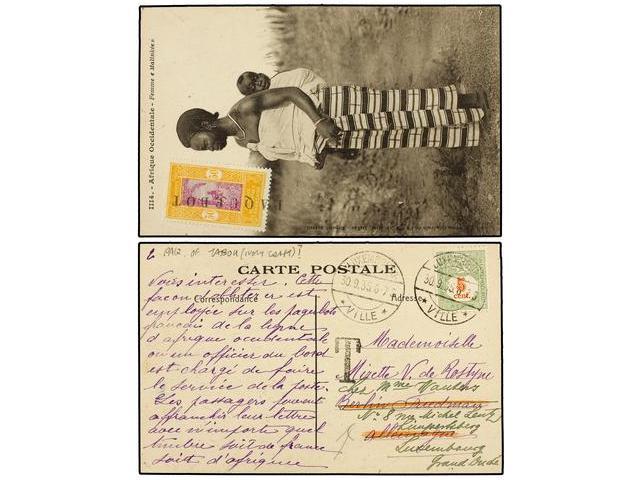 1114. - Afrique Occidentale - Femme « Malinkée »
PAQUEBOT
1912 OF TABOU (IVORY COAST)?
CARTE POSTALE
Correspondance
Adresse
LUXEMBOURG
VILLE
LUXEMBOURG
VILLE
5
cent.
T
Vous interesser. Cette
façon d'affranchir est
employée sur les paquebots
français de la ligne
d'afrique occidentale
où un officier du bord
est chargé de faire
le service de la poste.
Les passagers peuvent
affranchir leur lettre
avec n'importe quel
timbre soit de france
soit d'afrique
Mademoiselle
Mizette V. de Rostyne
chez Mme Wauters
Berlin Friedenau
No 8 rue Michel Lentz
Limpertsberg
allemagne
Luxembourg
Grand Duché